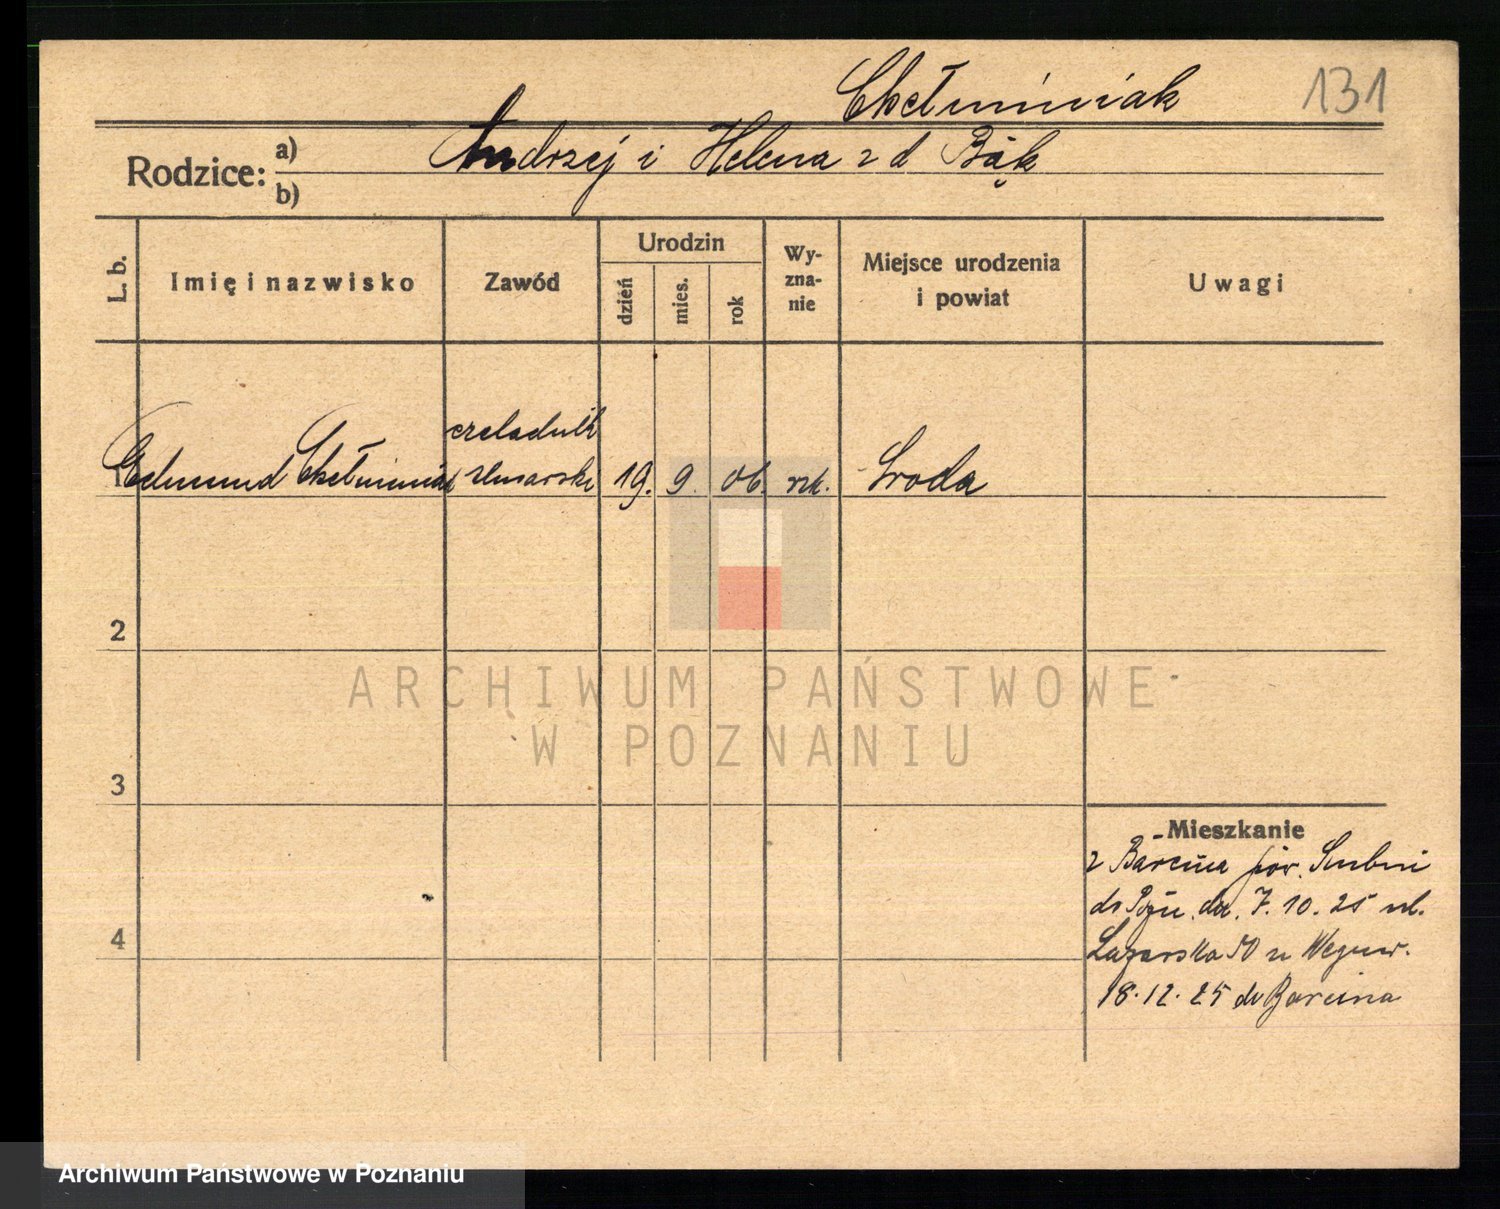 Chełminiak 131
Rodzice: a) Andrzej i Helena z d Bąk
b)
L. b. Imię i nazwisko Zawód Urodzin dzień mies. rok Wy-zna-nie Miejsce urodzenia i powiat Uwagi
czeladnik
1 Edmund Chełminiak ślusarski 19. 9. 06. rzk. Środa
2
ARCHIWUM PAŃSTWOWE
W POZNANIU
3
4
Mieszkanie
z Barcina pow. Szubin
do Pozn. dn. 7.10.25 ul.
Łazarska 50 u
18.12.25 do Barcina
Archiwum Państwowe w Poznaniu